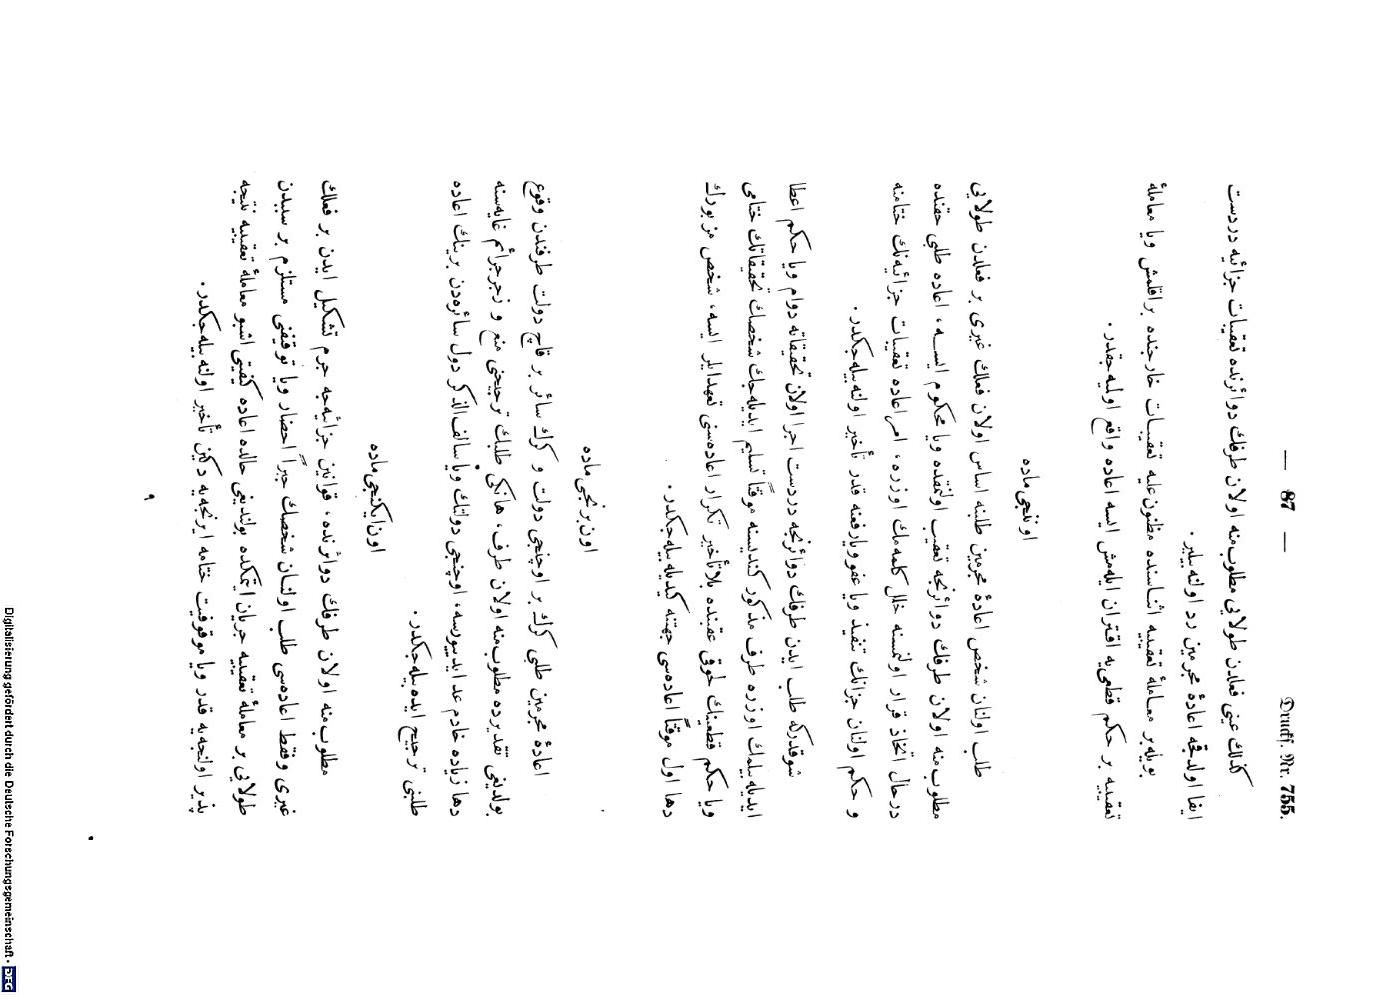 — 87 —
Druckf. Nr. 755.
كذلك عينى فعلدن طولايى مطلوب‌منه اولان طرفك دوائرنده تعقيبات جزائيه دردست
ايفا اولدقجه اعادۀ مجرمين رد اولنه‌بيلير.
بويله بر معاملۀ تعقيبيه اثناسنده مظنون‌عليه تعقيبات خارجنده براقلمش ويا معاملۀ
تعقيبيه بر حكم قطعى‌يه اقتران ايلەمش ايسه اعاده واقع اولميه‌جقدر.
اوننجى ماده
طلب اولنان شخص اعادۀ مجرمين طلبنه اساس اولان فعلك غيرى بر فعلدن طولايى
مطلوب‌منه اولان طرفك دوائرنجه تعقيب اولنمقده ويا محكوم ايسه، اعاده طلبى حقنده
درحال اتخاذ قرار اولنمسنه خلل كلمه‌مك اوزره، امر اعاده تعقيبات جزائيه‌نك ختامنه
و حكم اولنان جزانك تنفيذ ويا عفو ويا رفعنه قدر تأخير اولنه‌بيله‌جكدر.
شوقدركه طلب ايدن طرفك دوائرنجه دردست اجرا اولان تحقيقاته دوام ويا حكم اعطا
ايديله‌بيلمك اوزره طرف مذكور كنديسنه موقةً تسليم ايديله‌جك شخصك تحقيقاتك ختامى
ويا حكم قطعينك لحوق عقبنده بلاتأخير تكرار اعاده‌سنى تعهد ايلر ايسه، شخص مزبورك
دها اول موقةً اعاده‌سى جهتنه كيديله‌بيله‌جكدر.
اون‌برنجى ماده
اعادۀ مجرمين طلبى كرك بر اوچنجى دولت و كرك سائر بر قاچ دولت طرفندن وقوع
بولديغى تقديرده مطلوب‌منه اولان طرف، هانكى طلبك ترجيحنى منع و زجر جرائم غايه‌سنه
دها زياده خادم عد ايدييورسه، اوچنجى دولتك ويا سالف‌الذكر دول سائره‌دن برينك اعاده
طلبنى ترجيح ايده‌بيله‌جكدر.
اون‌ايكنجى ماده
مطلوب‌منه اولان طرفك دوائرنده، قوانين جزائيه‌جه جرم تشكيل ايدن بر فعلك
غيرى وفقط اعاده‌سى طلب اولنان شخصك جبراً احضار ويا توقيفنى مستلزم بر سببدن
طولايى بر معاملۀ تعقيبيه جريان ايتمكده بولنديغى حالده اعاده كيفيتى اشبو معاملۀ تعقيبيه نتيجه
پذير اولنجه‌يه قدر ويا موقوفيت ختامه ايرنجه‌يه دكين تأخير اولنه‌بيله‌جكدر.
٩
Digitalisierung gefördert durch die Deutsche Forschungsgemeinschaft · DFG